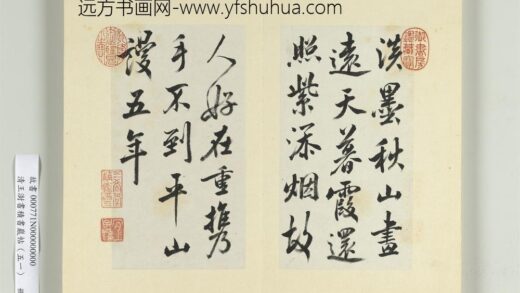 远方书画网-www.yfshuhua.com
淡墨秋山畫
遠天暮霞還
照紫添烟故
人好在重攜
手不到平山
謾五年
故書 000771N000000000
清王澍書積書巖帖（五一）